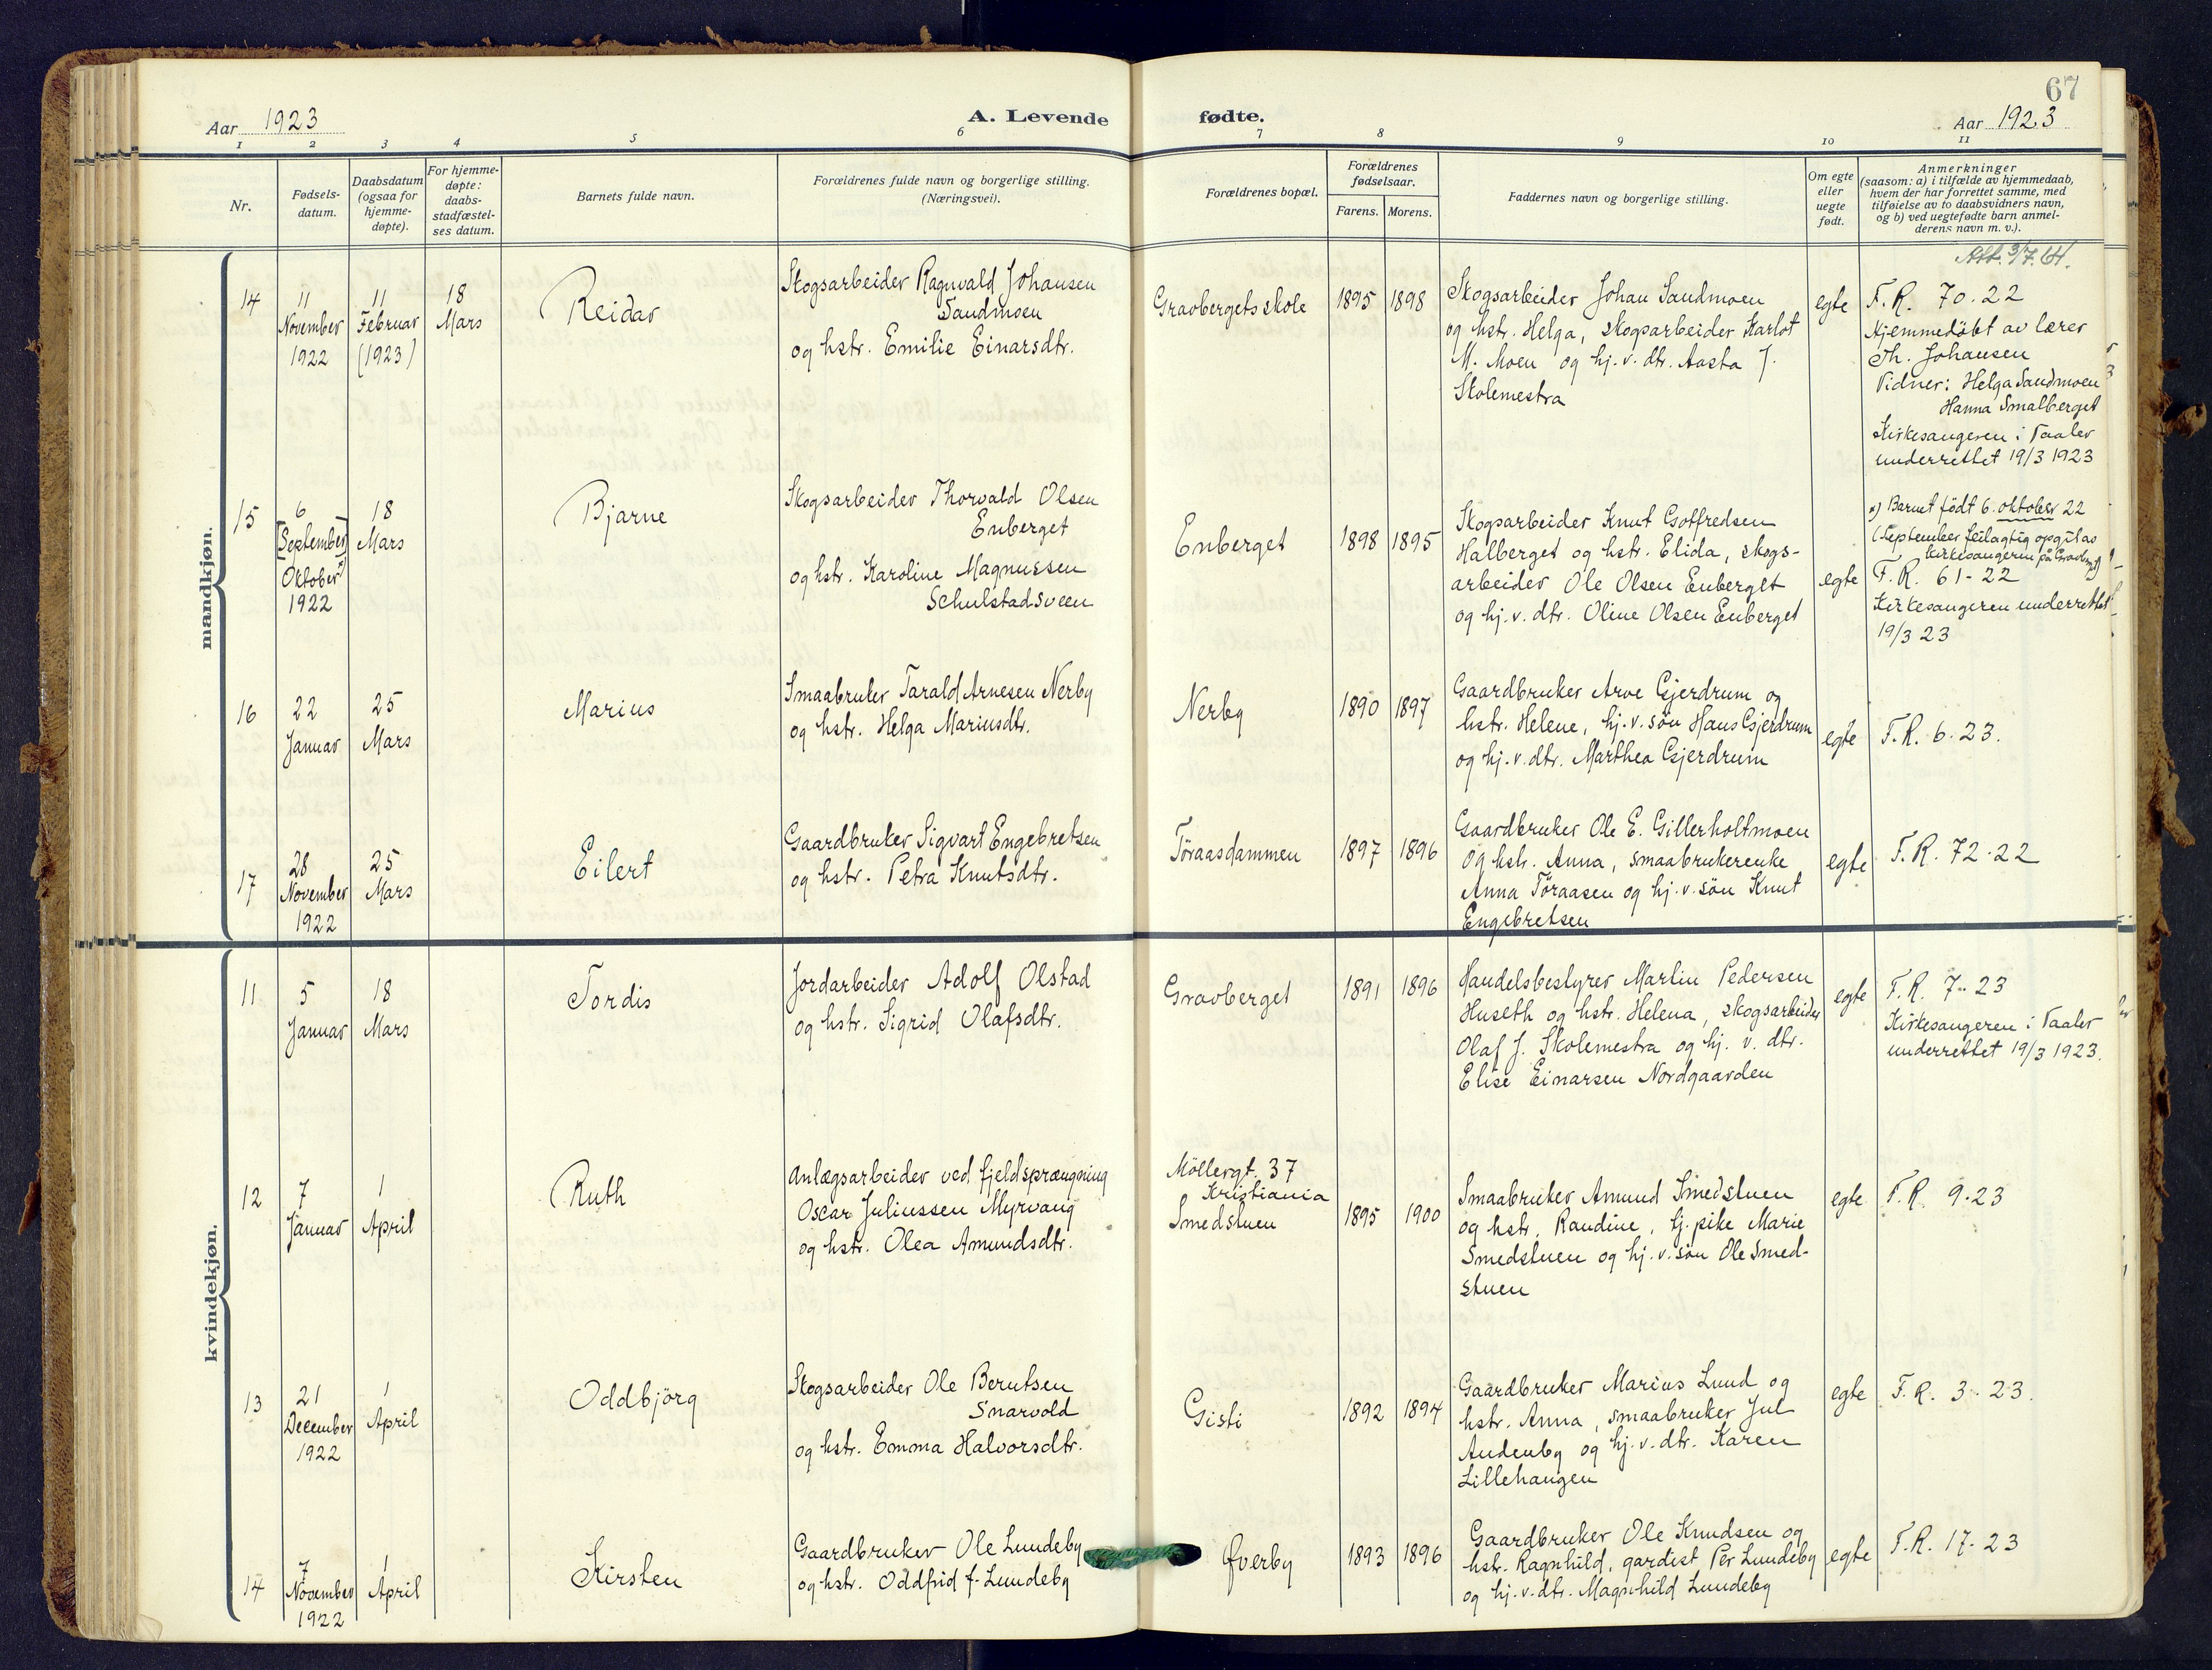 67
Aar 1923
A. Levende
fødte.
Aar 1923
1 2 3 4 5 6 7 8 9 10 11
Nr.
Fødsels-
datum.
Daabsdatum
(ogsaa for
hjemme-
døpte).
For hjemme-
døpte:
daabs-
stadfæstel-
ses datum.
Barnets fulde navn.
Forældrenes fulde navn og borgerlige stilling.
(Næringsvei).
Forældrenes bopæl.
Forældrenes
fødselsaar.
Farens. Morens.
Faddernes navn og borgerlige stilling.
Om egte
eller
uegte
født.
Anmerkninger
(saasom: a) i tilfælde av hjemmedaab,
hvem der har forrettet samme, med
tilføielse av to daabsvidners navn,
og b) ved uegtefødte barn anmel-
derens navn m. v.).
mandkjøn.
14
11
November
1922
11
Februar
(1923)
18
Mars
Reidar
Skogsarbeider Ragnvald Johansen
Sandmoen
og hstr. Emilie Einarsdtr.
Gravbergets skole
1895
1898
Skogsarbeider Johan Sandmoen
og hstr. Helga, skogsarbeider Karlot
M. Moen og hj. v. dtr. Aasta J.
Skolemestra
egte
Att. 3/7.64.
F. R. 70-22
Hjemmedöbt av lærer
Th. Johansen
Vidner: Helga Sandmoen
Hanna Smalberget
Kirkesangeren i Vaaler
underrettet 19/3 1923
15
6
[September]
Oktober x)
1922
18
Mars
Bjarne
Skogsarbeider Thorvald Olsen
Enberget
og hstr. Karoline Magnussen
Schulstadsveen
Enberget
1898
1895
Skogsarbeider Knut Gotfredsen
Halberget og hstr. Elida, skogs-
arbeider Ole Olsen Enberget
og hj. v. dtr. Oline Olsen Enberget
egte
x) Barnet født 6. oktober 22
(September feilagtig opgit av
Kirkesangeren på Gravberget)
F. R. 61-22
Kirkesangeren underrettet
19/3 23
16
22
Januar
25
Mars
Marius
Smaabruker Tarald Arnesen Nerby
og hstr. Helga Mariusdtr.
Nerby
1890
1897
Gaardbruker Arve Gjerdrum og
hstr. Helene, hj. v. sön Hans Gjerdrum
og hj. v. dtr. Marthea Gjerdrum
egte
F. R. 6-23.
17
28
November
1922
25
Mars
Eilert
Gaardbruker Sigvart Engebretsen
og hstr. Petra Knutsdtr.
Töraasdammen
1897
1896
Gaardbruker Ole E. Gillerholtmoen
og hstr. Anna, smaabrukerenke
Anna Töraasen og hj. v. sön Knut
Engebretsen
egte
F. R. 72-22
kvindekjøn.
11
5
Januar
18
Mars
Tordis
Jordarbeider Adolf Olstad
og hstr. Sigrid Olafsdtr.
Gravberget
1891
1896
Handelsbestyrer Martin Pedersen
Huseth og hstr. Helena, skogsarbeider
Olaf J. Skolemestra og hj. v. dtr.
Elise Einarsen Nordgaarden
egte
F. R. 7-23
Kirkesangeren i Vaaler
underrettet 19/3 1923.
12
7
Januar
1
April
Ruth
Anlægsarbeider ved fjeldsprængning
Oscar Juliussen Myrvang
og hstr. Olea Amundsdtr.
Möllergt. 37
Kristiania
Smedstuen
1895
1900
Smaabruker Amund Smedstuen
og hstr. Randine, tj. pike Marie
Smedstuen og hj. v. sön Ole Smed-
stuen
egte
F. R. 9-23
13
21
December
1922
1
April
Oddbjörg
Skogsarbeider Ole Berntsen
Snarvold
og hstr. Emma Halvorsdtr.
Gisti
1892
1894
Gaardbruker Marius Lund og
hstr. Anna, smaabruker Jul
Audenby og hj. v. dtr. Karen
Lillehaugen
egte
F. R. 3-23.
14
7
November
1922
1
April
Kirsten
Gaardbruker Ole Lundeby
og hstr. Oddfrid f. Lundeby
Øverby
1893
1896
Gaardbruker Ole Knudsen og
hstr. Ragnhild, gardist Per Lundeby
og hj. v. dtr. Magnhild Lundeby
egte
F. R. 17-23